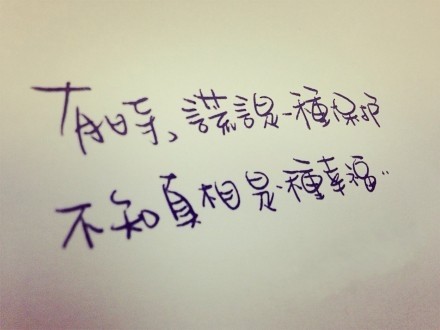 有時、謊言是一種保护
不知真相是一種幸福..